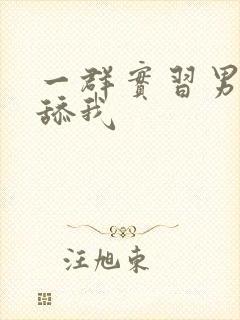 一群實習男
舔我
汪旭東